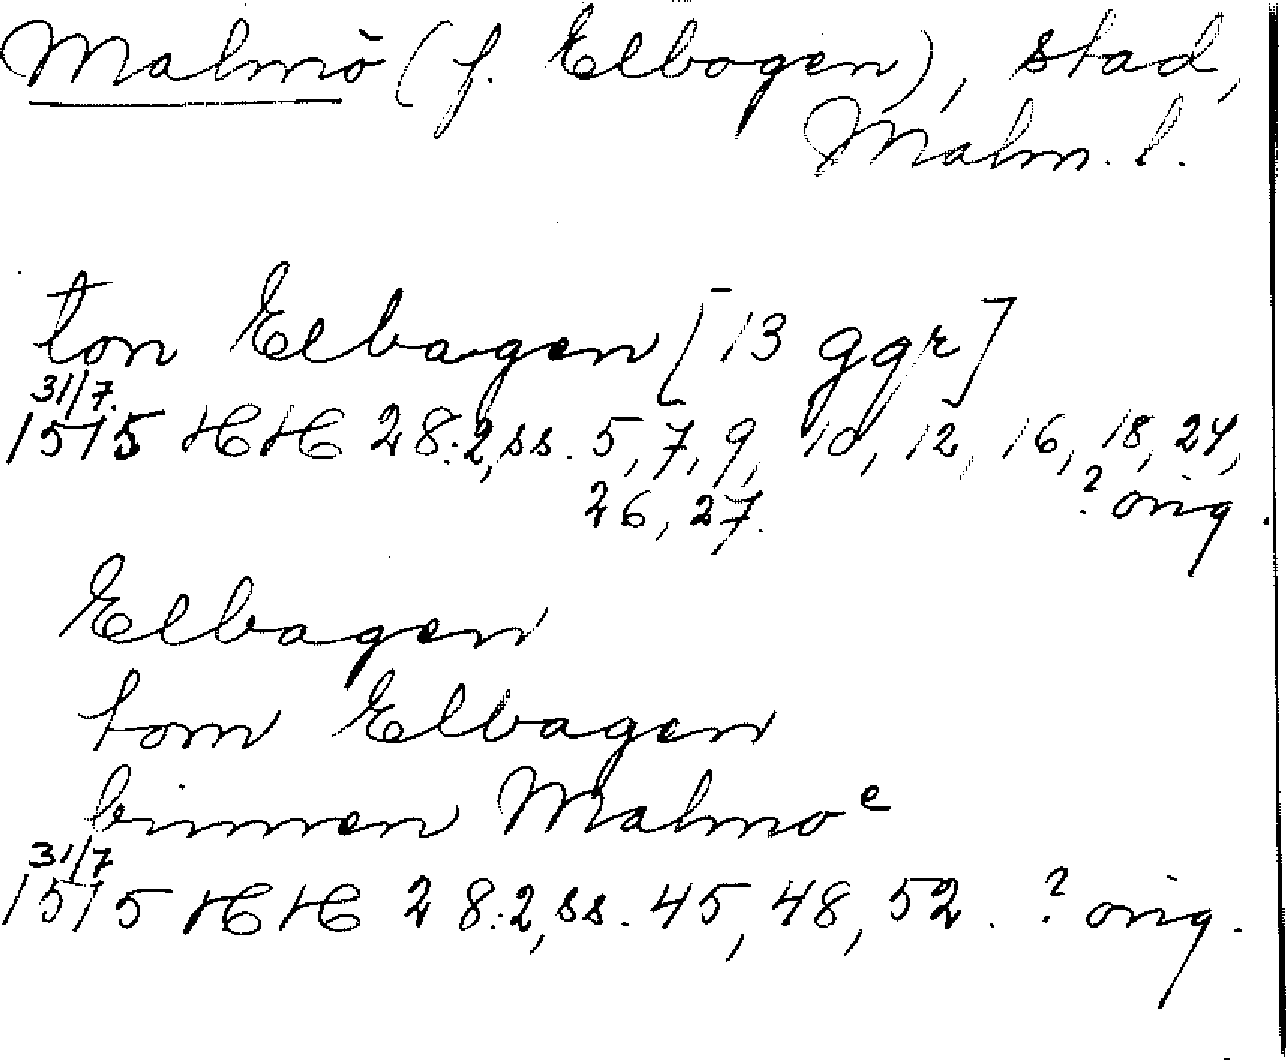 Malmö (f. Elbogen), stad,
Malm. l.
ton Elbagen [13 ggr]
31/7.
1515 HH 28:2, ss. 5, 7, 9, 10, 12, 16, 18, 24,
26, 27. ? orig.
Elbagen
tom Elbagen
binnen Malmoᵉ
31/7
1515 HH 28:2, ss. 45, 48, 52. ? orig.